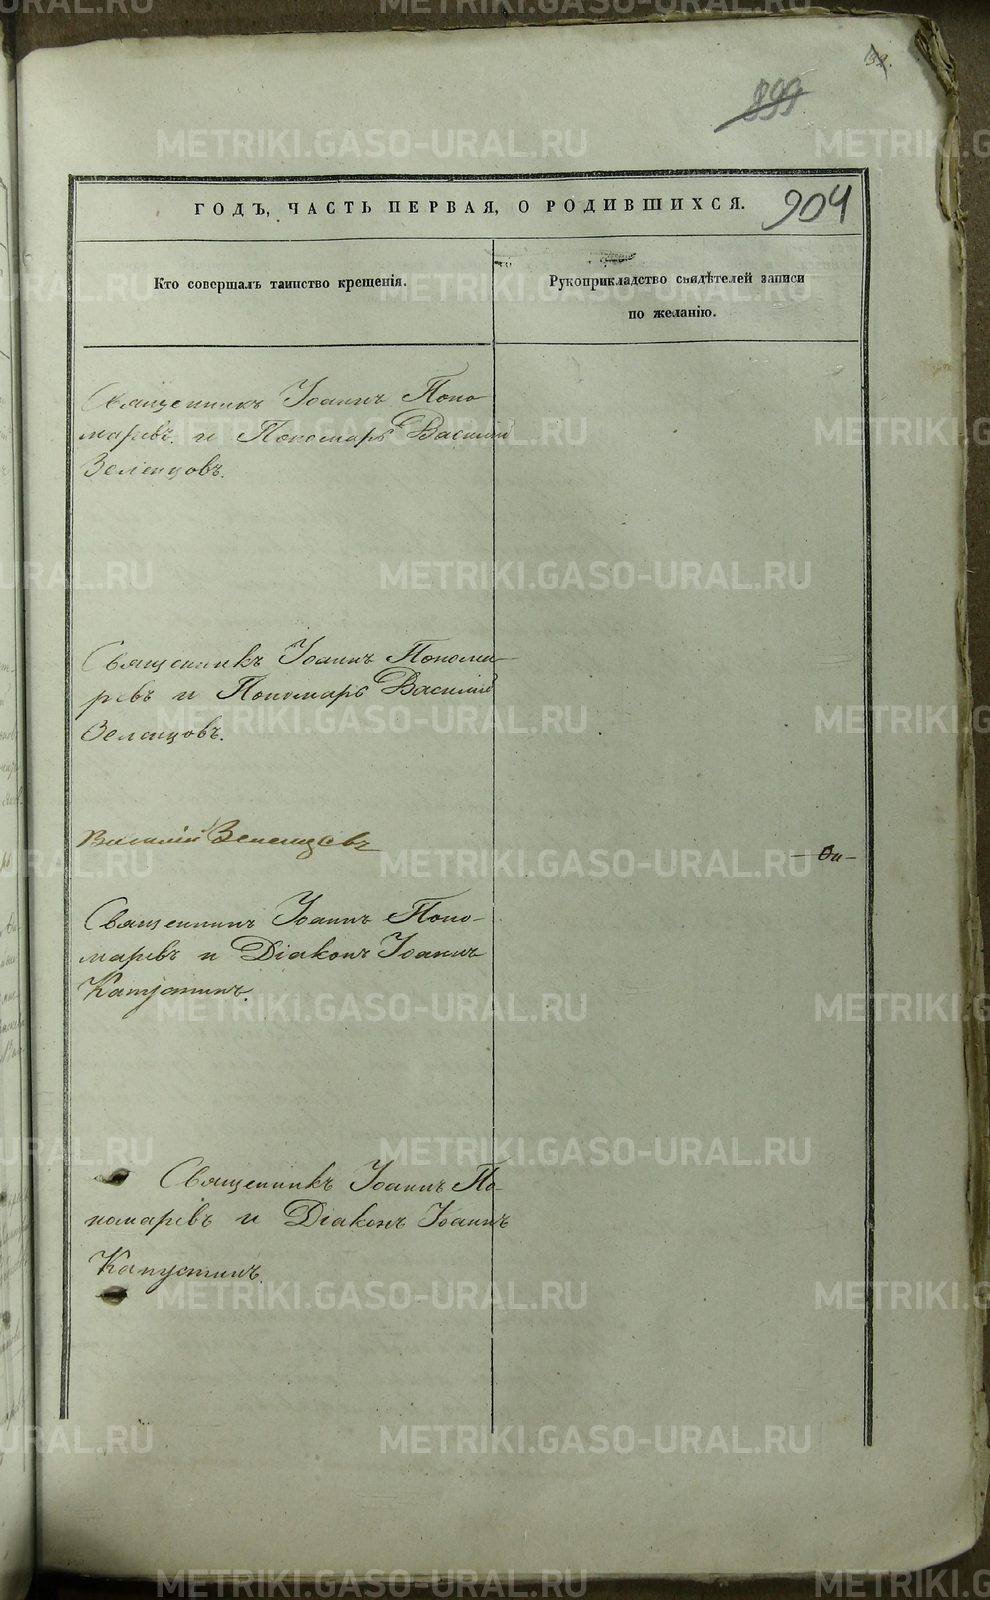 899
904
ГОДЪ, ЧАСТЬ ПЕРВАЯ, О РОДИВШИХСЯ.
Кто совершалъ таинство крещенія.
Рукоприкладство свидѣтелей записи
по желанію.
Священникъ Іоаннъ Поно
маревъ. и Пономарь Василій
Зеленцовъ.
Священникъ Іоаннъ Понома-
ревъ и Пономарь Василій
Зеленцовъ.
Василій Зеленцовъ
Священникъ Іоаннъ Поно-
маревъ и Діаконъ Іоаннъ
Капустинъ.
Священникъ Іоаннъ По-
номаревъ и Діаконъ Іоаннъ
Капустинъ.
METRIKI.GASO-URAL.RU